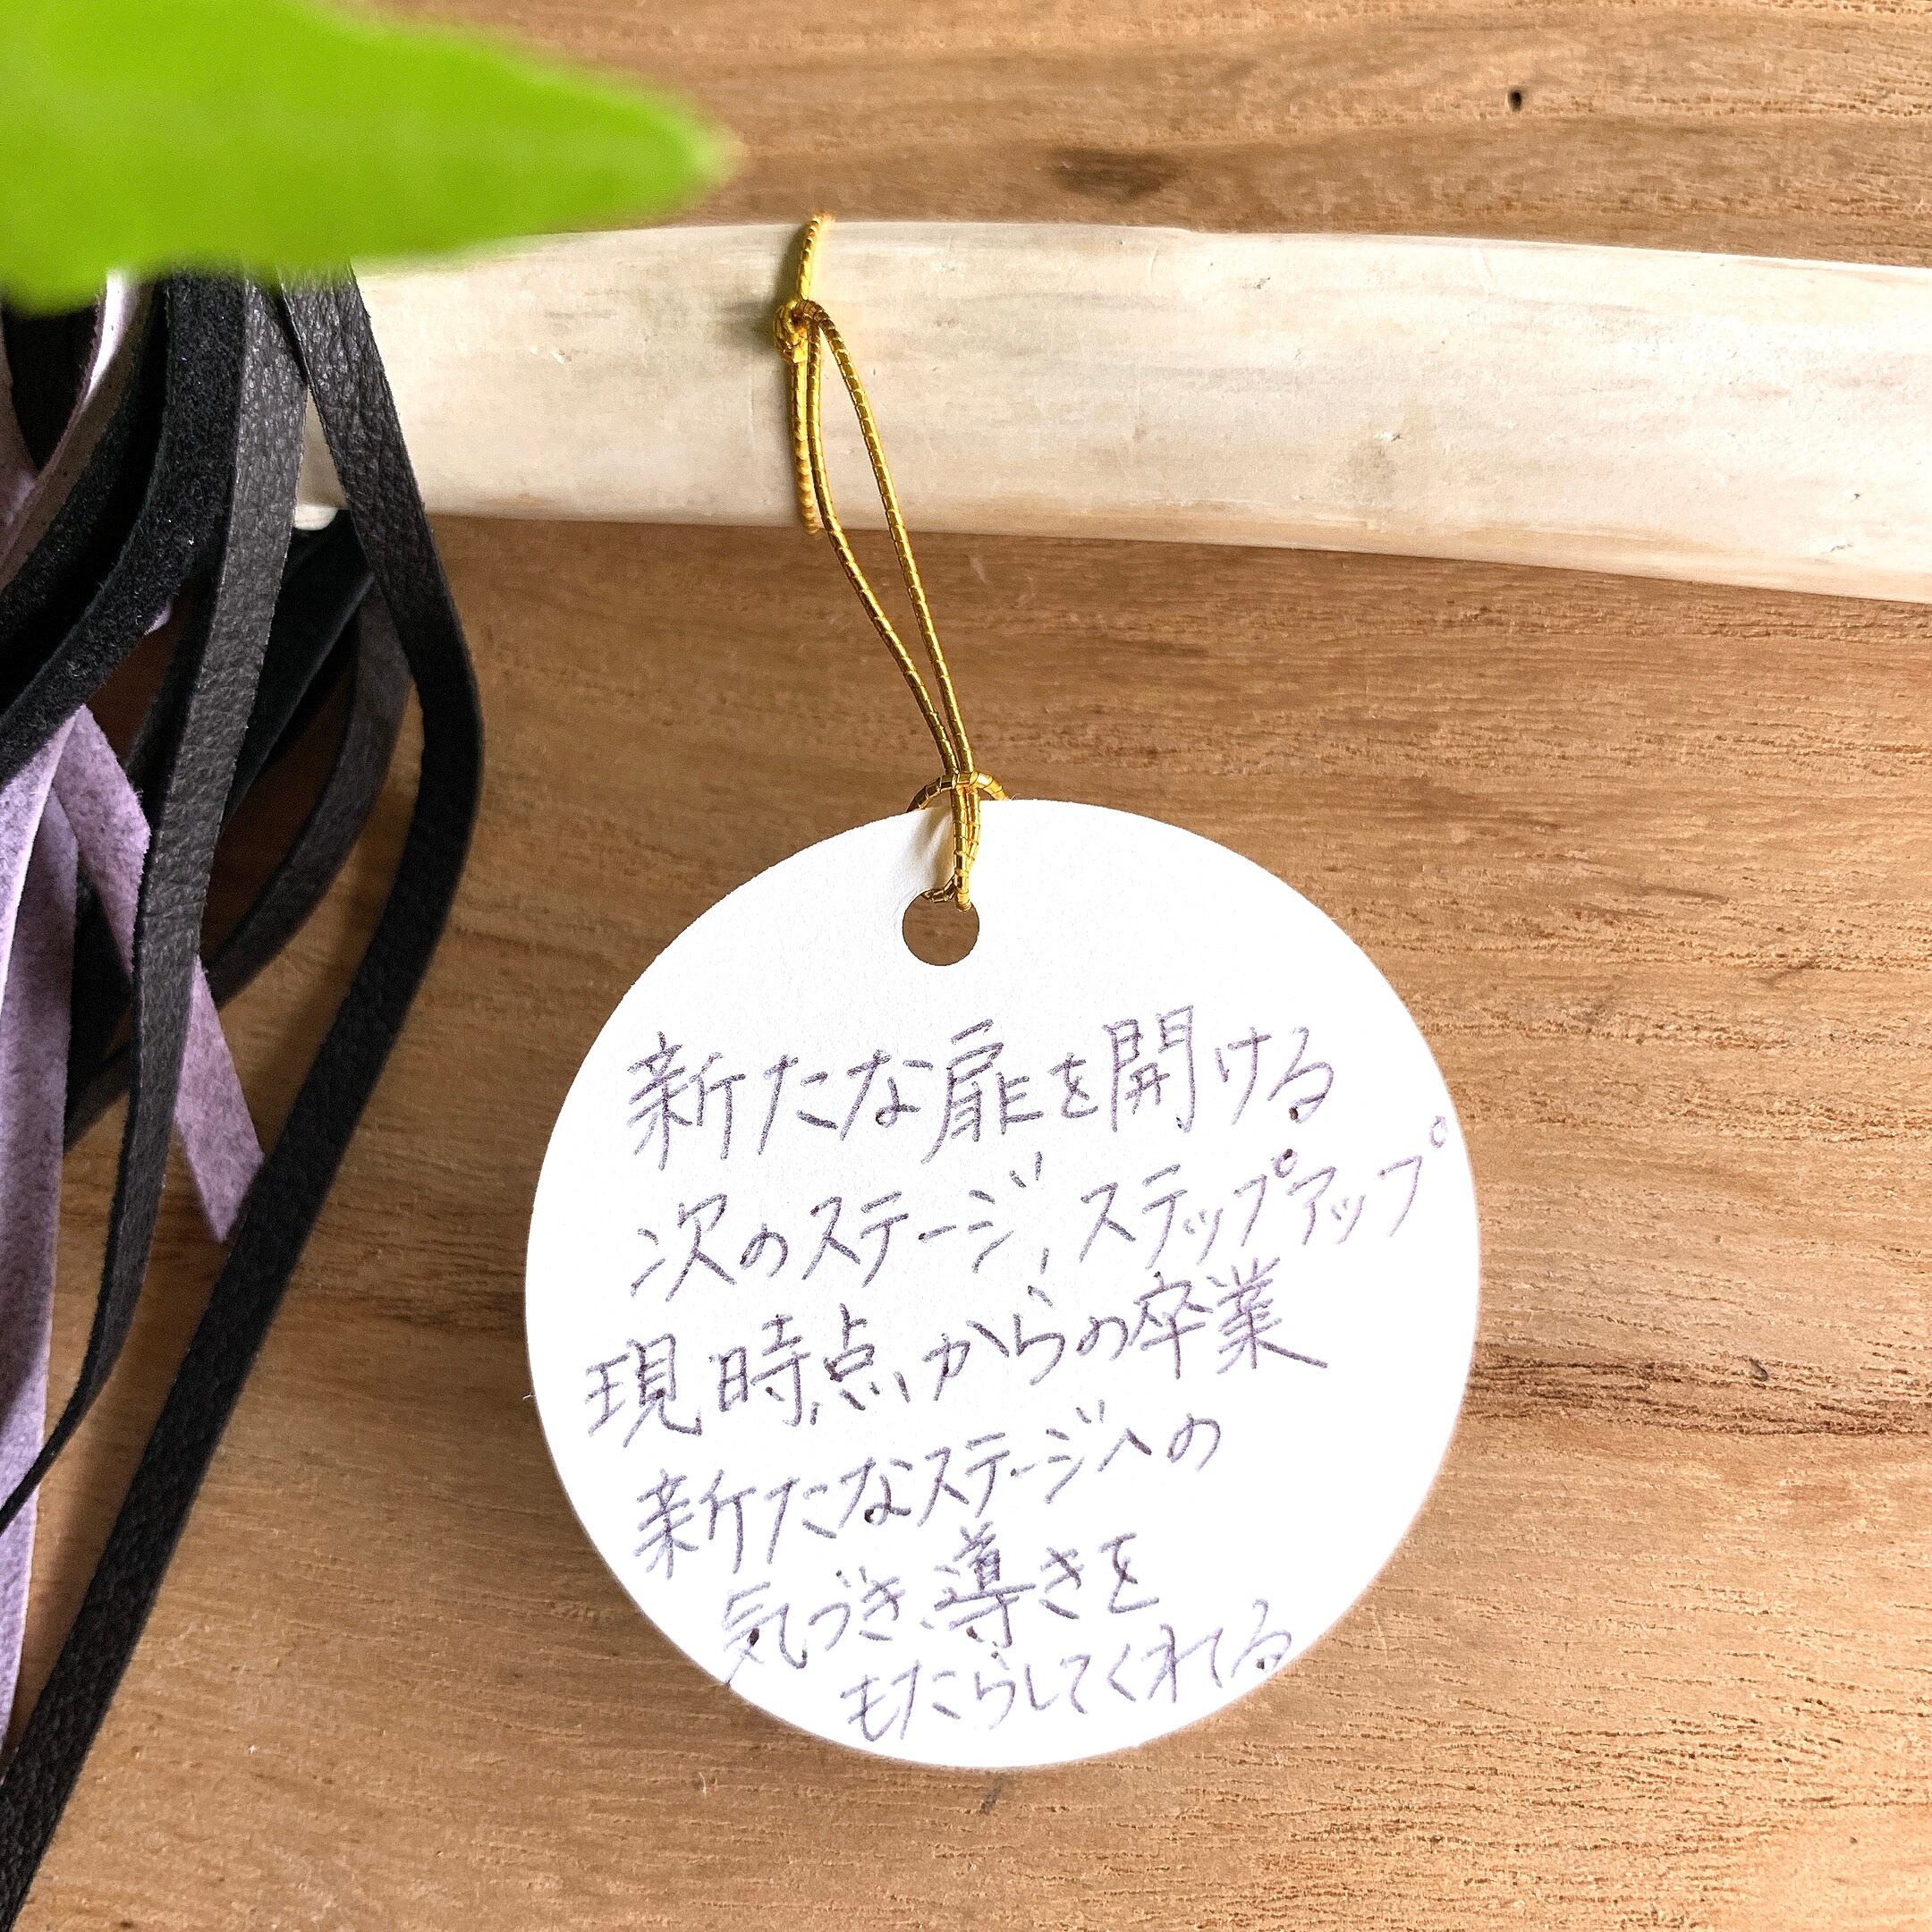 新たな扉を開ける
次のステージ、ステップアップ
現時点からの卒業
新たなステージへの
気づき、導きを
もたらしてくれてる